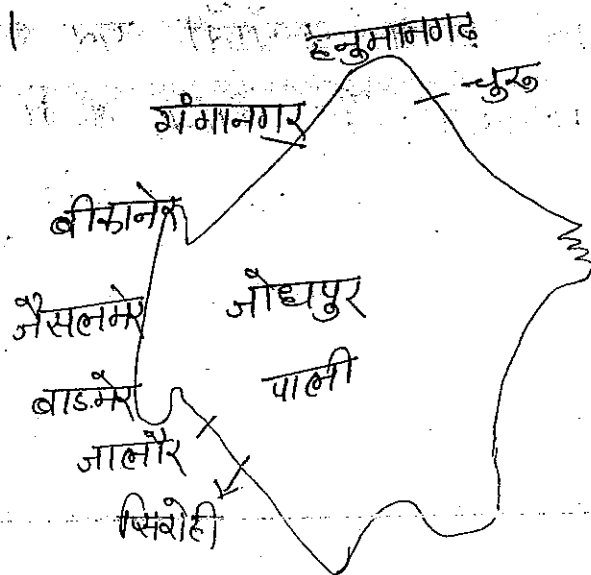 हनुमानगढ़
चुरू
गंगानगर
बीकानेर
जोधपुर
जैसलमेर
पाली
बाड़मेर
जालौर
सिरोही